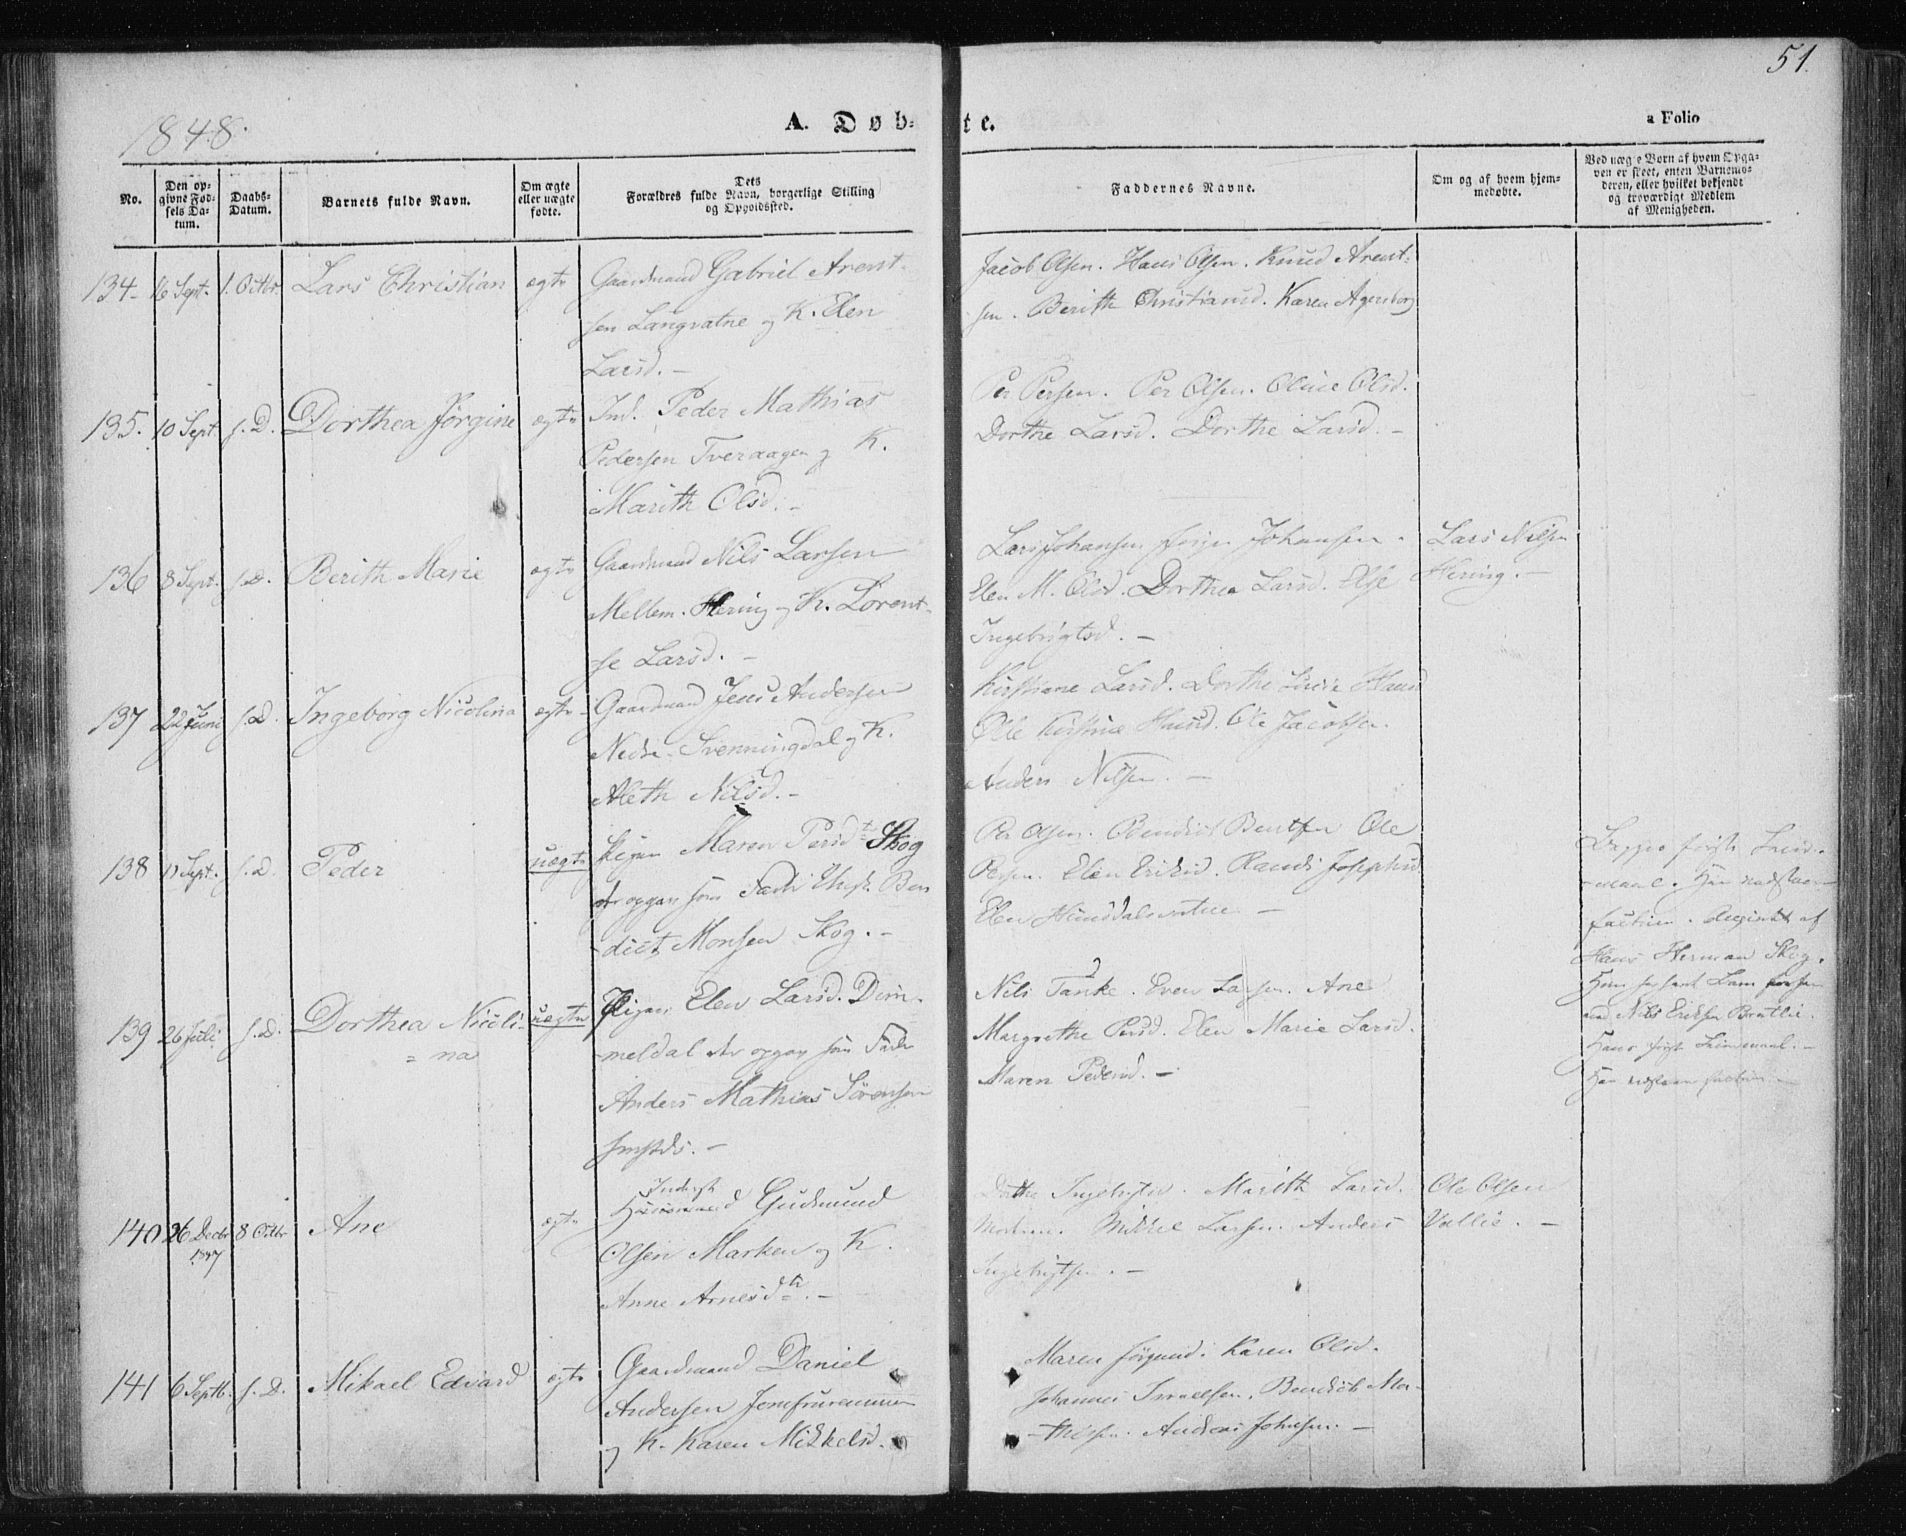 51.
1848.
A. Døb- te.
a Folio
No.
Den op-
givne Fød-
sels Da-
tum.
Daabs-
Datum.
Barnets fulde Navn.
Om ægte
eller uægte
fødte.
Dets
Forældres fulde Navn, borgerlige Stilling
og Opholdssted.
Faddernes Navne.
Om og af hvem hjem-
medøbte.
Ved uægte Børn af hvem Opga-
ven er skeet, enten Barnemo-
deren, eller hvilket bekjendt
og troværdigt Medlem
af Menigheden.
134 - 16 Sept. 1. Octbr. Lars Christian ægte Gaardmand Gabriel Arent-
sen Langvatne og K. Elen
Larsd. -
Jacob Olsen. Hans Olsen. Knud Arent-
sen. Berith Christiansd. Karen Agersborg
135. 10 Sept. s. D. Dorthea Jørgine ægte Ind. Peder Mathias
Pedersen Tveraagen og K.
Marith Olsd. -
Per Persen. Per Olsen. Oline Olsd.
Dorthe Larsd. Dorthe Larsd. -
136 8 Sept. s. D. Berith Marie ægte Gaardmand Nils Larsen
Mellem-Hering og K. Lorent-
se Larsd. -
Lars Johansen Johansen.
Elen M. Olsd. Dorthea Larsd. Else
Ingebrigtsd. -
Lars Nilsen
Hering. -
137 22 Juni s. D. Ingeborg Nicolina ægte Gaardmand Jens Andersen
Nedre-Svenningdal og K.
Aleth Nilsd. -
Kirstiane Larsd. Dorthe Hansd
Ole Kirstine Hansd. Ole Jacobsen.
Anders Nilsen. -
138 11 Sept. s. D. Peder uægte Pigen Maren Persdt Skog
der opgav som Fader Ben
dict Monsen Skog. -
Per Olsen. Bendict Bentsen Ole
Persen. Elen Eriksd. Randi Josephsd
Elen Hunsdalsvatne -
Begges første Leier-
maal.
af
Hans Herman Skog.
139 26 Juli s. D. Dorthea Nicoli-
= na
uægte Pigen Elen Larsd. Dim-
meldal der opgav som Fader
Anders Mathias Sørensen
smsteds. -
Nils Tanke. Even Larsen. Ane
Margrethe Persd. Elen Marie Larsd.
Maren Pedersd. -
Nils Eriksen Bratlie.
Hans første Leiermaal. -
140 26 Decbr
1847
8 Octbr Ane ægte Inderst
Gudmund
Olsen Marken og K.
Anne Arnesdtr. -
Dorthe Ingebrigtsd. Marith Larsd.
Moderen. Mikkel Larsen. Anders
Ingebrigtsen. -
Ole Olsen
Vallie. -
141 6 Septb. s. D. Mikael Edvard ægte Gaardmand Daniel
Andersen Jomfruremmen
og K. Karen Mikkelsd. -
Maren Jørgensd. Karen Olsd.
Johannes Israelsen. Bendict Ma-
thisen. Andreas Johnsen. -